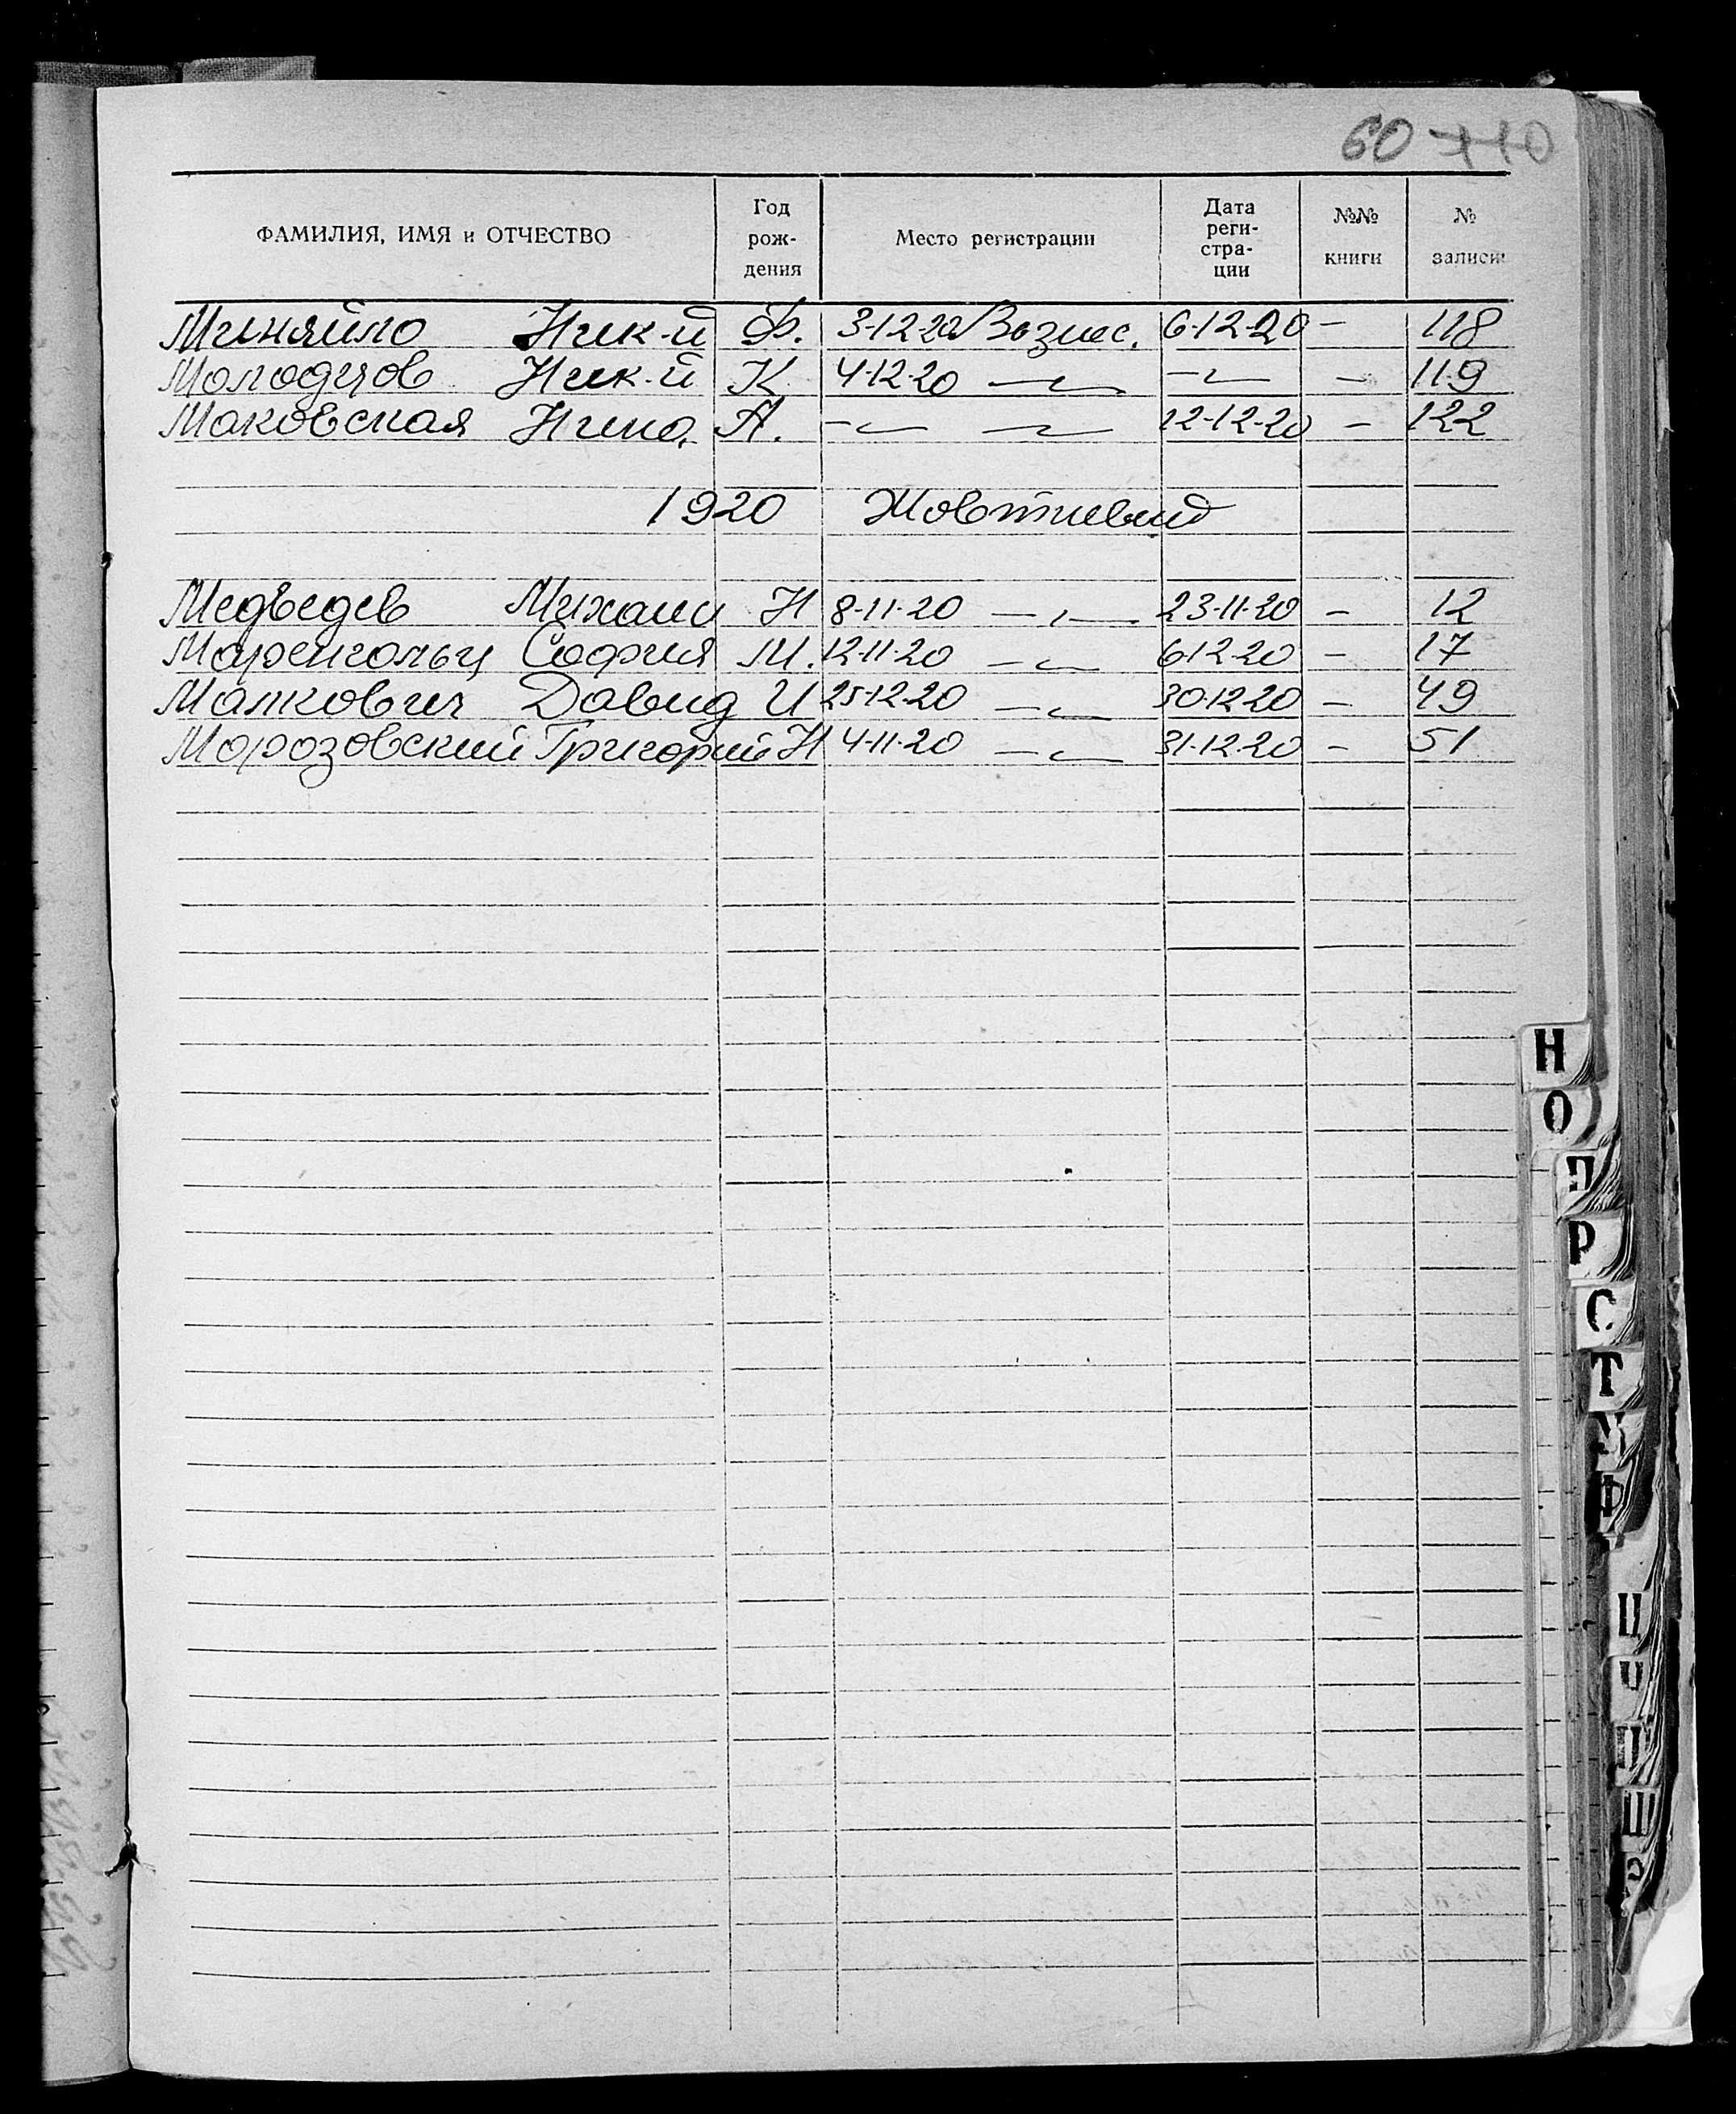 60 110
ФАМИЛИЯ, ИМЯ и ОТЧЕСТВО Год рож- дения Место регистрации Дата реги- стра- ции №№ книги № записи
Миняйло Ник-й Ф. 3-12-20 Вознес. 6-12-20 - 118
Молодцов Ник-й К 4-12-20 -"- -"- - 119
Маковская Нина А. -"- -"- 12-12-20 - 122
1920 Жовтневый
Медведев Михаил Н 8-11-20 -"- 23-11-20 - 12
Маренгольц София М. 12-11-20 -"- 6-12-20 - 17
Малкович Давид И 25-12-20 -"- 30-12-20 - 49
Морозовский Григорий Н 4-11-20 -"- 31-12-20 - 51
Н
О
П
Р
С
Т
У
Ф
Ц
Ч
Ш